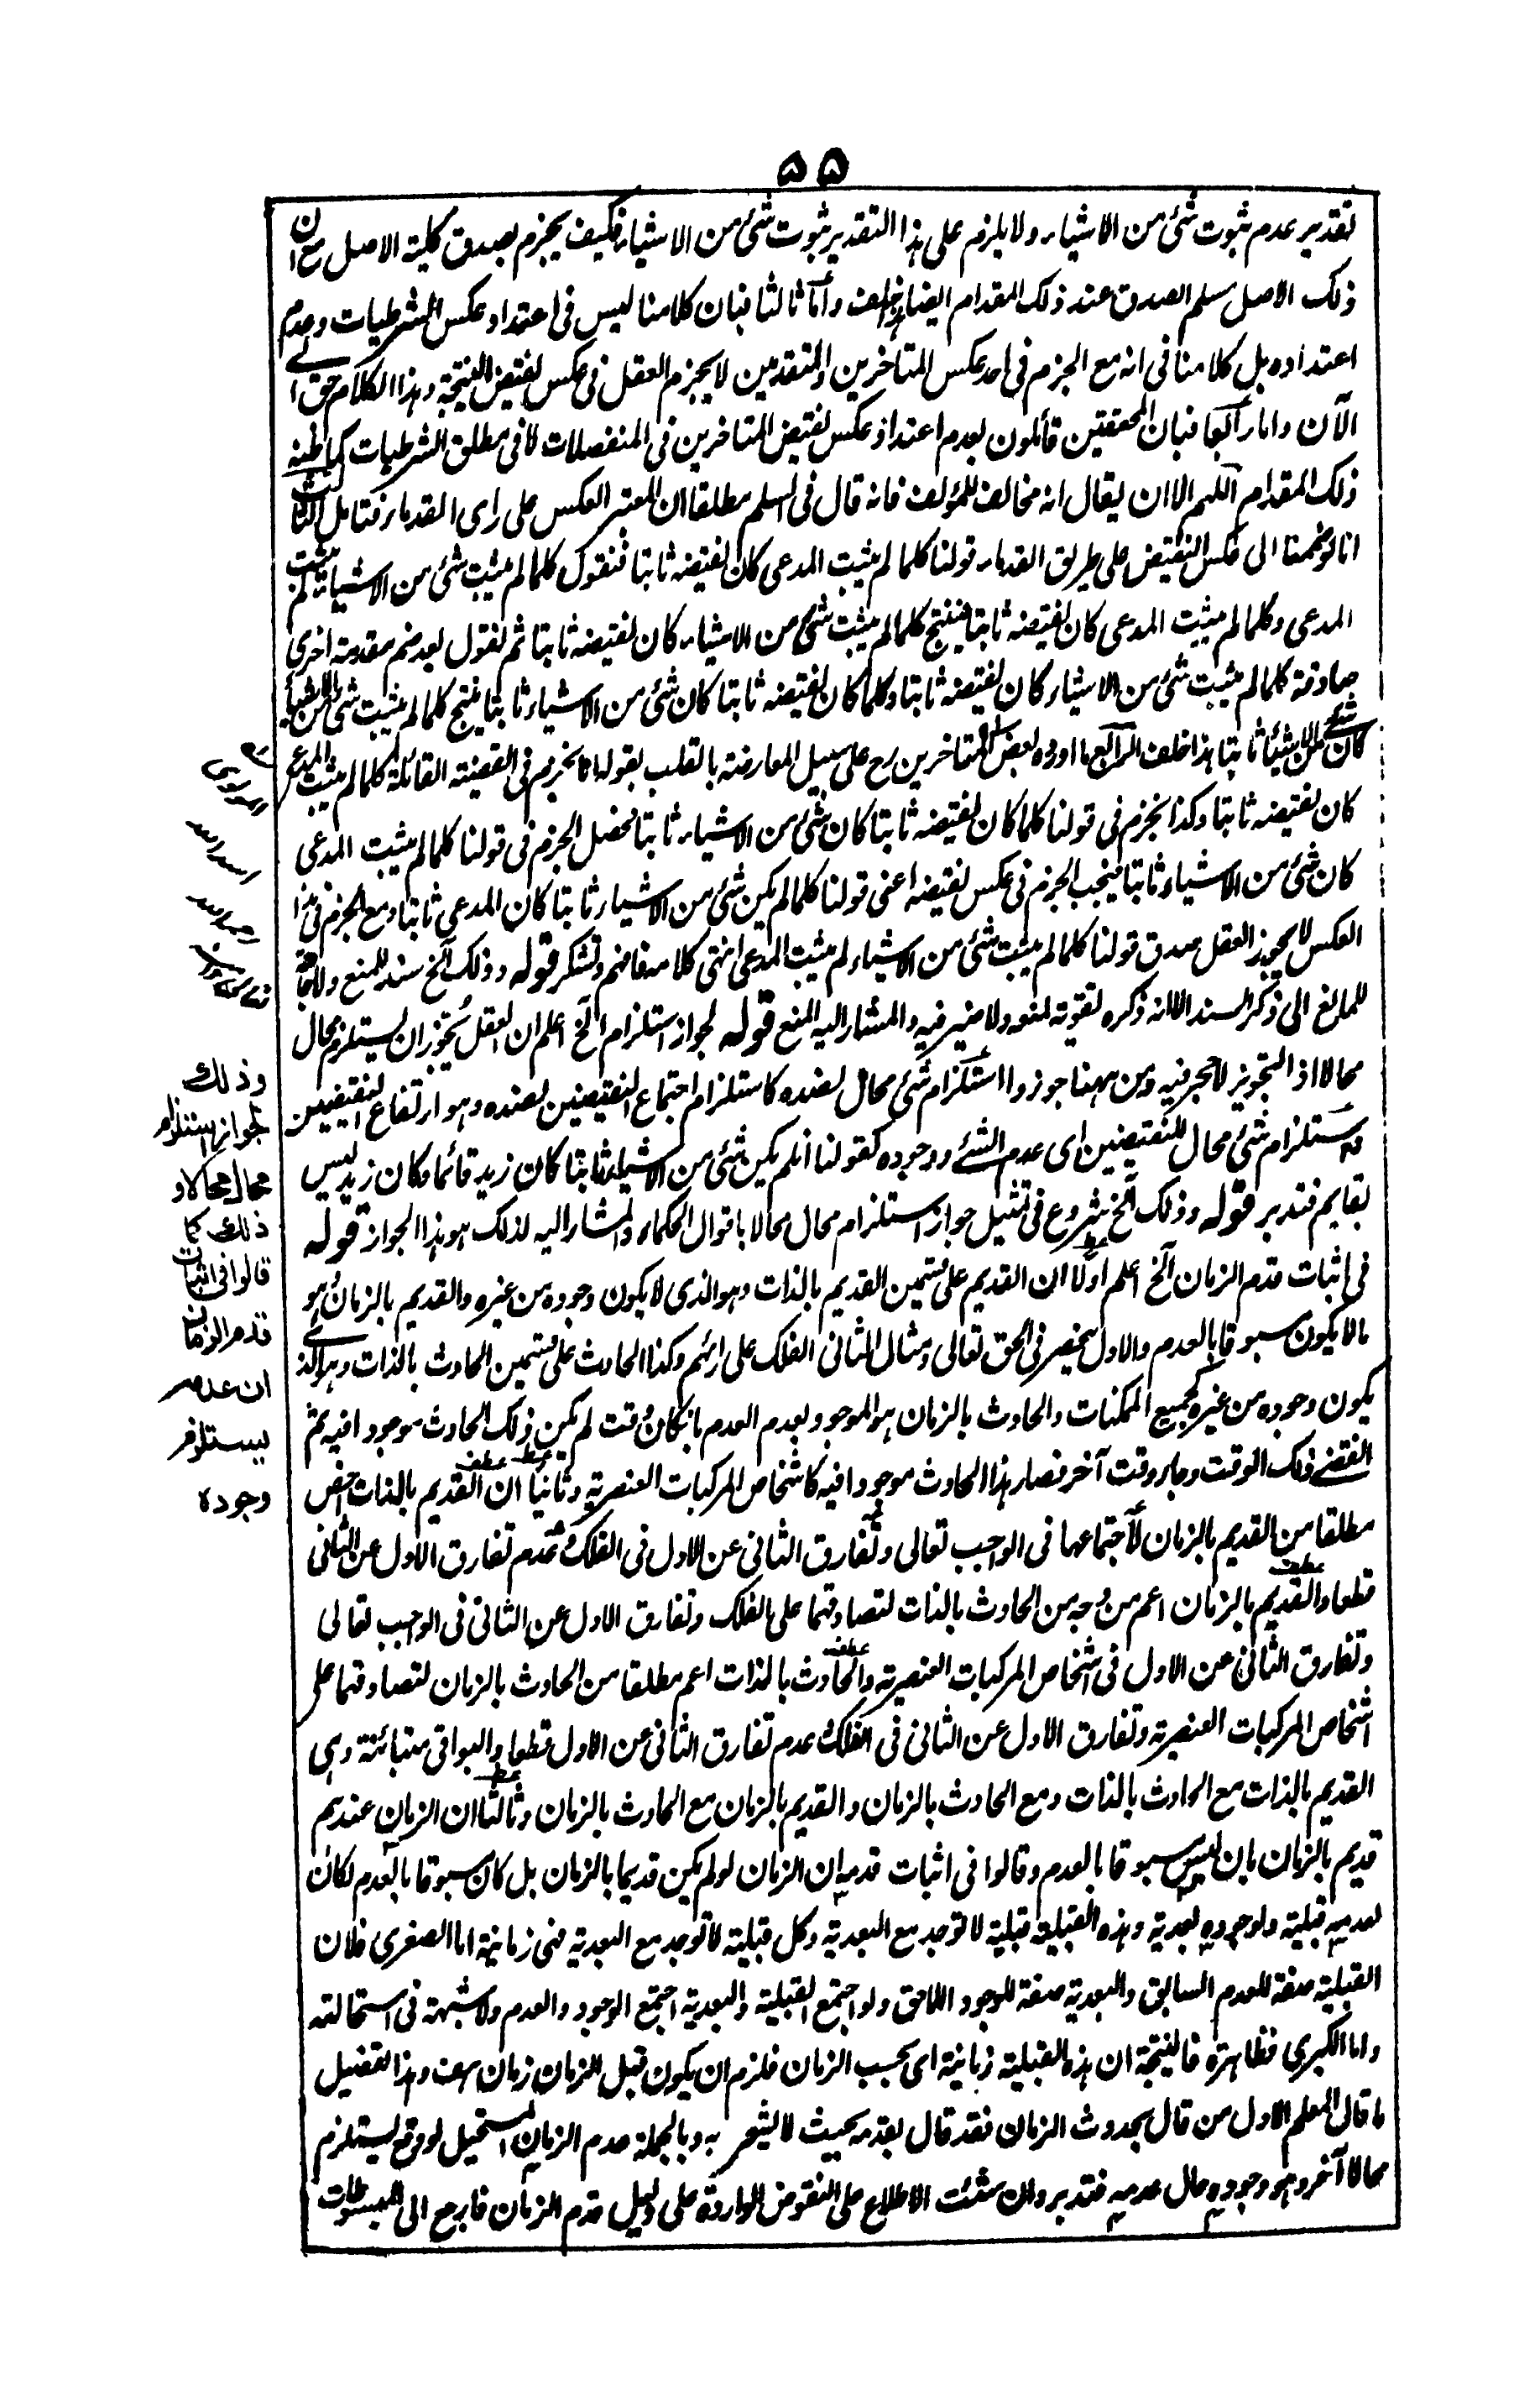 ۵۵
تقدير عدم ثبوت شئ من الاشياء ولا يلزم على هذا التقدير ثبوت شئ من الاشياء فكيف يجزم بصدق كلية الاصل مع ان
ذلك الاصل مسلم الصدق عند ذلك المقدام ايضا هذا خلف واما ثالثا فبان كلامنا ليس فى اعتداد عكس الشرطيات وعدم
اعتداده بل كلامنا فى انه مع الجزم فى احد عكس المتاخرين والمتقدمين لا يجزم العقل فى عكس نقيض النتيجة وهذا الكلام حق الى
الآن واما رابعا فبان المحققين قائلون بعدم اعتداد عكس نقيض المتاخرين فى المنفصلات لا فى مطلق الشرطيات كما ظنه
ذلك المقدام اللهم الا ان يقال انه مخالف للمؤلف فانه قال فى السلم مطلقا ان المعتبر العكس على راى القدماء فتامل الثالث
انا لو ضممنا الى عكس النقيض على طريق القدماء قولنا كلما لم يثبت المدعى كان نقيضه ثابتا فنقول كلما لم يثبت شئ من الاشياء لم يثبت
المدعى وكلما لم يثبت المدعى كان نقيضه ثابتا ينتج كلما لم يثبت شئ من الاشياء كان نقيضه ثابتا ثم نقول بعد ضم مقدمة اخرى
صادقة كلما لم يثبت شئ من الاشياء كان نقيضه ثابتا وكلما كان نقيضه ثابتا كان شئ من الاشياء ثابتا ينتج كلما لم يثبت شئ من الاشياء
كان شئ من الاشياء ثابتا هذا خلف الرابع ما اورده بعض المتاخرين رح على سبيل المعارضة بالقلب بقوله انا نجزم فى القضية القائلة كلما لم يثبت المدعى
كان نقيضه ثابتا وكذا نجزم فى قولنا كلما كان نقيضه ثابتا كان شئ من الاشياء ثابتا فحصل الجزم فى قولنا كلما لم يثبت المدعى
كان شئ من الاشياء ثابتا فيجب الجزم فى عكس نقيضه اعنى قولنا كلما لم يكن شئ من الاشياء ثابتا كان المدعى ثابتا ومع الجزم فى هذا
العكس لا يجوز العقل صدق قولنا كلما لم يثبت شئ من الاشياء لم يثبت المدعى انتهى كلامه فافهم وتشكر قوله وذلك الخ سند للمنع ولا حاجة
للمانع الى ذكر السند الا انه ذكره لتقوية لمنعه ولا ضير فيه والمشار اليه المنع قوله لجواز استلزام الخ اعلم ان العقل يجوز ان يستلزم محال
محالا اذ التجويز لا حجر فيه ومن ههنا جوزوا استلزام شئ محال لضده كاستلزام اجتماع النقيضين لضده وهو ارتفاع النقيضين
واستلزام شئ محال للنقيضين اى عدم الشئ ووجوده كقولنا ان لم يكن شئ من الاشياء ثابتا كان زيد قائما وكان زيد ليس
بقايم فتدبر قوله وذلك الخ شروع فى تمثيل جواز استلزام محال محالا باقوال الحكماء والمشار اليه لذلك هو هذا الجواز قوله
فى اثبات قدم الزمان الخ اعلم اولا ان القديم على قسمين القديم بالذات وهو الذى لا يكون وجوده من غيره والقديم بالزمان هو
ما لا يكون مسبوقا بالعدم والاول منحصر فى الحق تعالى ومثال الثانى الفلك على رائهم وكذا الحادث على قسمين الحادث بالذات وهو الذى
يكون وجوده من غيره كجميع الممكنات والحادث بالزمان هو الموجود بعدم العدم بان كان وقت لم يكن ذلك الحادث موجودا فيه ثم
انقضے ذلك الوقت وجاء وقت آخر فصار هذا الحادث موجودا فيه كاشخاص المركبات العنصرية وثانيا ان القديم بالذات اخص
مطلقا من القديم بالزمان لاجتماعهما فى الواجب تعالى وتفارق الثانى عن الاول فى الفلك وعدم تفارق الاول عن الثانى
قطعا والقديم بالزمان اعم من وجه من الحادث بالذات لتصادقهما على الفلك وتفارق الاول عن الثانى فى الواجب تعالى
وتفارق الثانى عن الاول فى اشخاص المركبات العنصرية والحادث بالذات اعم مطلقا من الحادث بالزمان لتصادقهما على
اشخاص المركبات العنصرية وتفارق الاول عن الثانى فى الفلك وعدم تفارق الثانى عن الاول قطعا والبواقى متبائنة وهى
القديم بالذات مع الحادث بالذات ومع الحادث بالزمان و القديم بالزمان مع الحادث بالزمان وثالثا ان الزمان عندهم
قديم بالزمان بان ليس مسبوقا بالعدم وقالوا فى اثبات قدمه ان الزمان لو لم يكن قديما بالزمان بل كان مسبوقا بالعدم لكان
لعدمه قبلية ولوجوده بعدية وهذه القبلية قبلية لا توجد مع البعدية وكل قبلية لا توجد مع البعدية فهى زمانية اما الصغرى فلان
القبلية صفة للعدم السابق والبعدية صفة للوجود اللاحق ولو اجتمع القبلية والبعدية اجتمع الوجود والعدم ولا شبهة فى استحالته
واما الكبرى فظاهرة فالنتيجة ان هذه القبلية زمانية اى بحسب الزمان فلزم ان يكون قبل الزمان زمان هف وهذا تفصيل
ما قال المعلم الاول من قال بحدوث الزمان فقد قال بقدمه بحيث لا يشعر به وبالجملة عدم الزمان المستحيل لو وقع يستلزم
محالا آخر وهو وجوده حال عدمه فتدبر وان شئت الاطلاع على النقوض الواردة على دليل قدم الزمان فارجع الى المبسوطات
وذلك
لجواز استلزام
محال محالا و
ذلك كما
قالوا فى اثبات
قدم الزمان
ان عدمه
يستلزم
وجوده